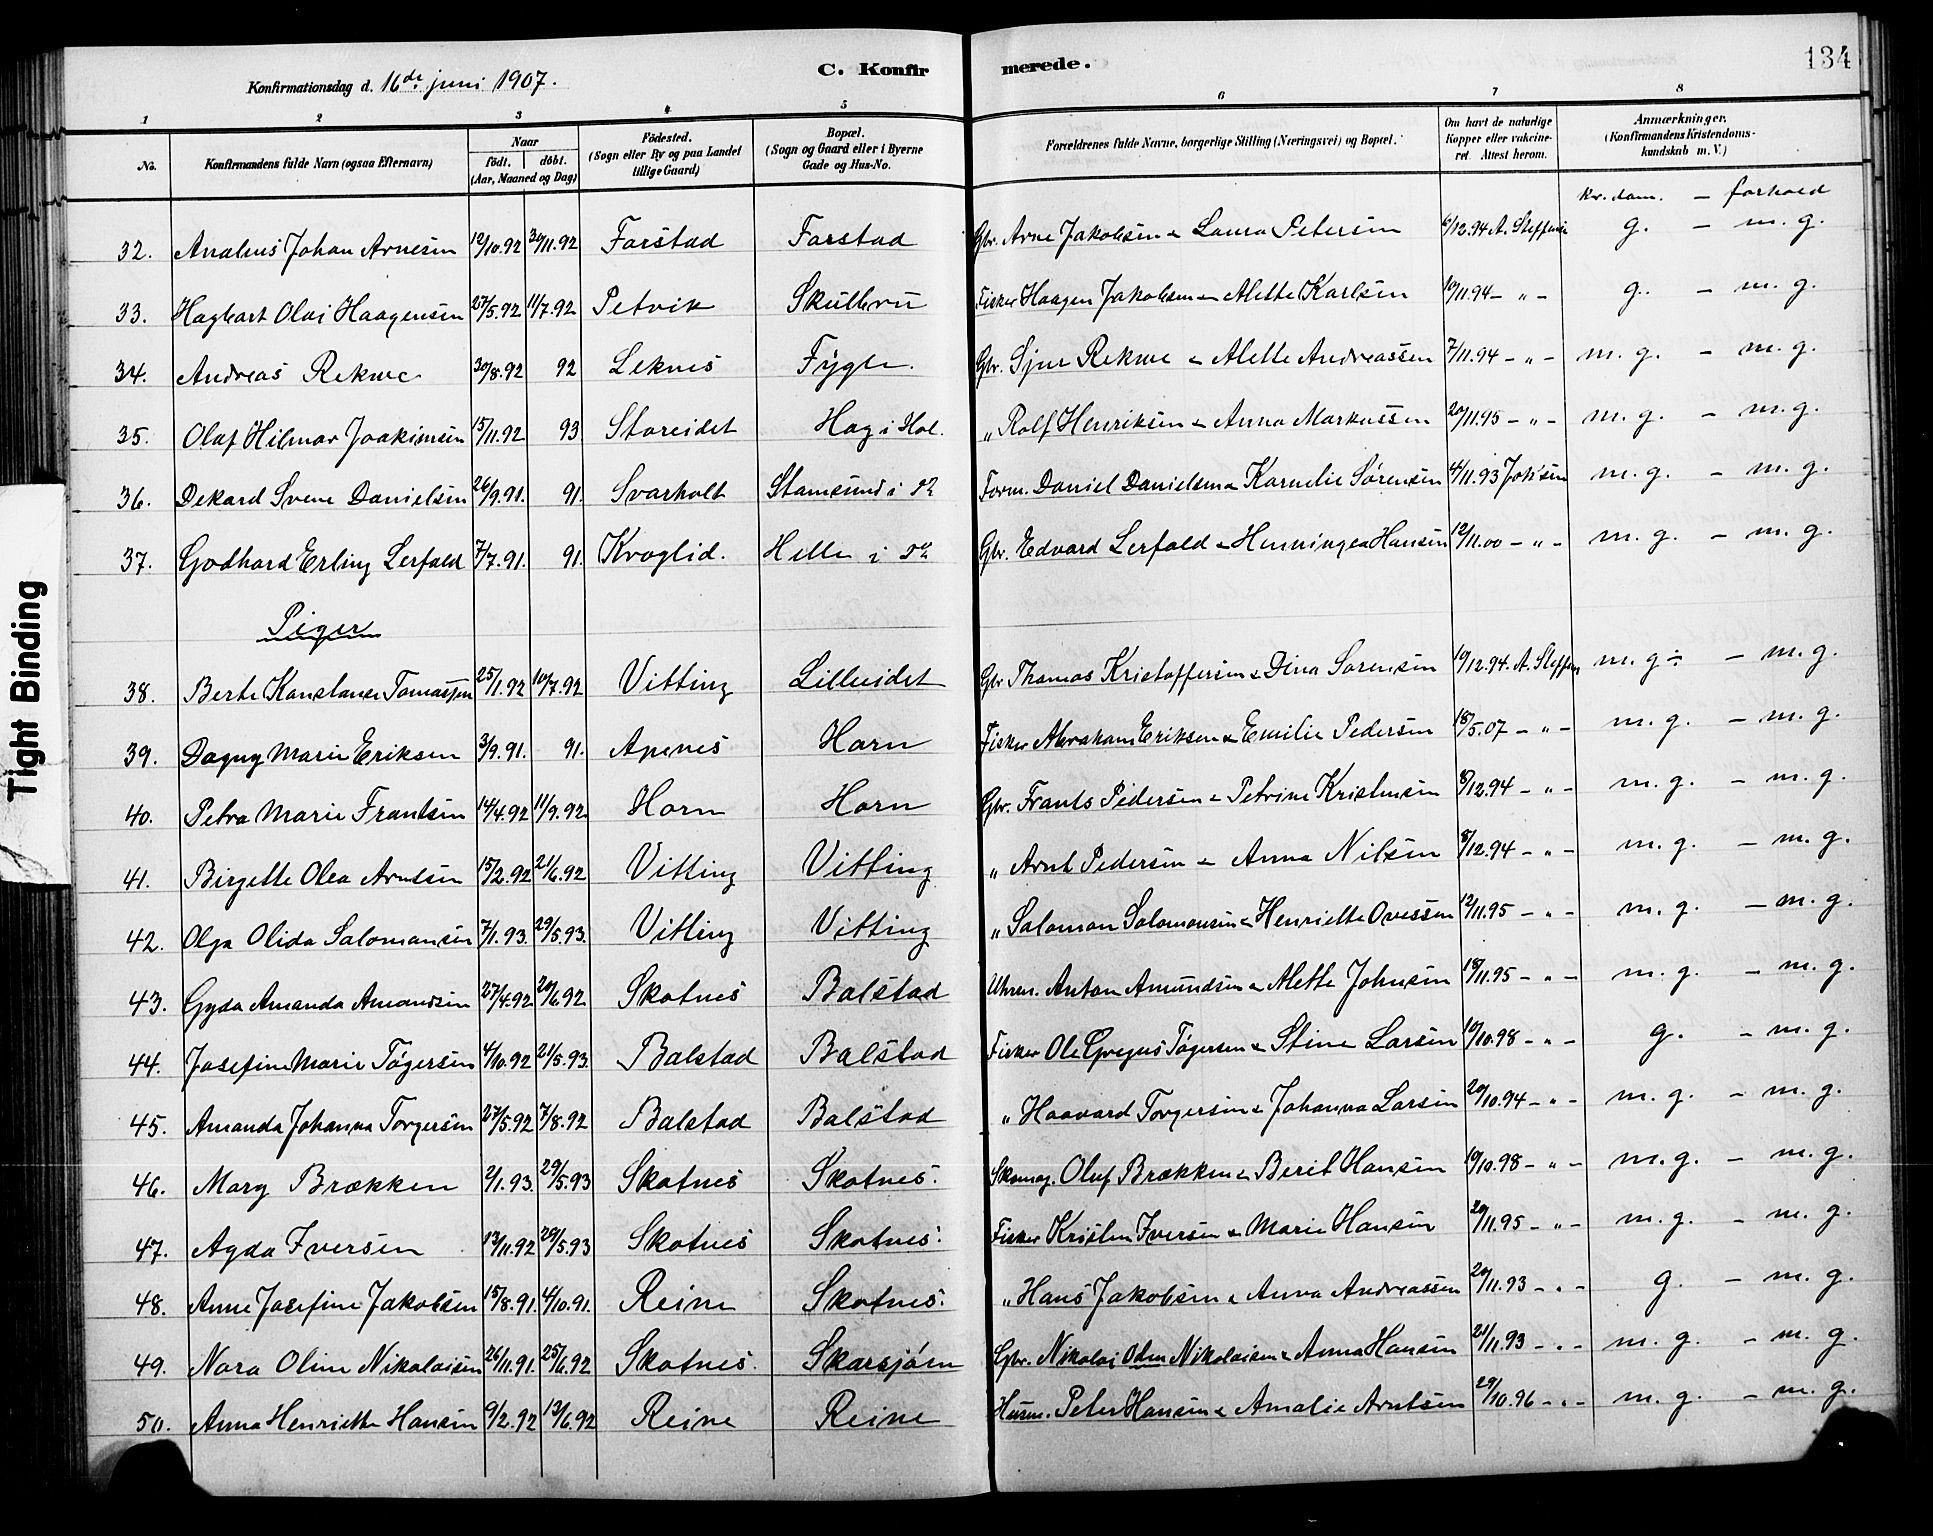 134
Konfirmationsdag d. 16de juni 1907.
C. Konfirmerede.
1 2 3 4 5 6 7 8
No. Konfirmandens fulde Navn (ogsaa Efternavn) Naar født. døbt. (Aar, Maaned og Dag) Fødested. (Sogn eller By og paa Landet tillige Gaard) Bopæl. (Sogn og Gaard eller i Byerne Gade og Hus-No. Forældrenes fulde Navne, borgerlige Stilling (Næringsvei) og Bopæl. Om havt de naturlige Kopper eller vakcineret. Attest herom. Anmærkninger. (Konfirmandens Kristendomskundskab m. V.)
kr.dom. - forhold
32. Analius Johan Arnesen 12/10.92 30/11.92 Farstad Farstad Gbr. Arne Jakobsen & Laura Petersen 6/12.94 A. Steffens g. - m. g.
33. Hagbart Olai Haagensen 27/5.92 11/7.92 Petvik Skulbru Fisker Haagen Jakobsen & Alette Karlsen 10/11.94 - „ - g. - m. g.
34. Andreas Rekwe 30/8.92 92 Leknes Fygle. Gbr. Sjur Rekwe & Alette Andreassen 7/11.94 - „ - m. g. - m. g.
35. Olaf Hilmar Joakimsen 15/11.92 93 Storeidet Hag i Hol. „ Rolf Henriksen & Anna Markussen 20/11.95 - „ - m. g. - m. g.
36. Dekard Svene Danielsen 26/9.91. 91. Svarholt Stamsund i do Form. Daniel Danielsen & Kornelie Sørensen 4/11.93 Johnsen m. g. - m. g.
37. Godhard Erling Lerfald 7/7.91. 91. Kroglid. Helle i do Gbr. Edvard Lerfald & Henningea Hansen 12/11.00 - „ - m. g. - m. g.
Piger
38. Berte Konstanse Tomassen 25/1.92 10/7.92 Vitting Lilleeidet Gbr Thomas Kristoffersen & Dina Sorensen 10/12.94. A. Steffens m. g ÷ - m. g.
39. Dagny Marie Eriksen 3/9.91. 91. Apenes Horn Fisker Abraham Eriksen & Emilie Pedersen 18/5.07 - „ - m. g. - m. g.
40. Petra Marie Frantsen 14/4.92 11/9.92 Horn Horn Gbr. Frants Pedersen & Petrine Kristensen 8/12.94 - „ - m. g. - m. g.
41. Birgette Olea Arntsen 15/2.92 21/6.92 Vitting Vitting „ Arnt Pedersen & Anna Nilsen 8/12.94 - „ - m. g. - m. g.
42. Olga Olida Salomansen 7/1.93. 29/5.93. Vitting Vitting „ Salomon Salomonsen & Henriette Ovessen 12/11.95 - „ - m. g. - m. g.
43. Gyda Amanda Amandsen 27/4.92 20/6.92 Skotnes Balstad Uhrm. Anton Amundsen & Alette Johnsen 18/11.95 - „ - m. g. - m. g.
44. Josefine Marie Tøgersen 4/10.92 21/5.93. Balstad Balstad Fisker Ole Gregus Tøgersen & Stine Larsen 10/10.98 - „ - g. - m. g.
45. Amanda Johanna Torgersen 27/5.92 7/8.92 Balstad Balstad „ Haavard Torgersen & Johanna Larsen 20/10.94 - „ - m. g. - m. g.
46. Mary Brækken 2/1.93. 29/5.93 Skotnes Skotnes. Skomag. Oluf Brækken & Berit Hansen 10/10.98 - „ - m. g. - m. g.
47. Agda Iversen 13/11.92 29/5.93 Skotnes Skotnes. Fisker Kristen Iversen & Marie Hansen 20/11.95 - „ - m. g. - m. g.
48. Anne Josefine Jakobsen 15/8.91. 4/10.91. Reine Skotnes. „ Hans Jakobsen & Anna Andreassen 20/11.93 - „ - g. - m. g.
49. Nora Oline Nikolaisen 26/11.91. 25/6.92 Skotnes. Skarsjøen Gbr. Nikolai Oden Nikolaisen & Anna Hansen 21/11.93 - „ - m. g. - m. g.
50. Anna Henriette Hansen 9/2.92 13/6.92 Reine Reine Husm. Peter Hansen & Amalie Arntsen 29/10.96 - „ - m. g. - m. g.
Tight Binding